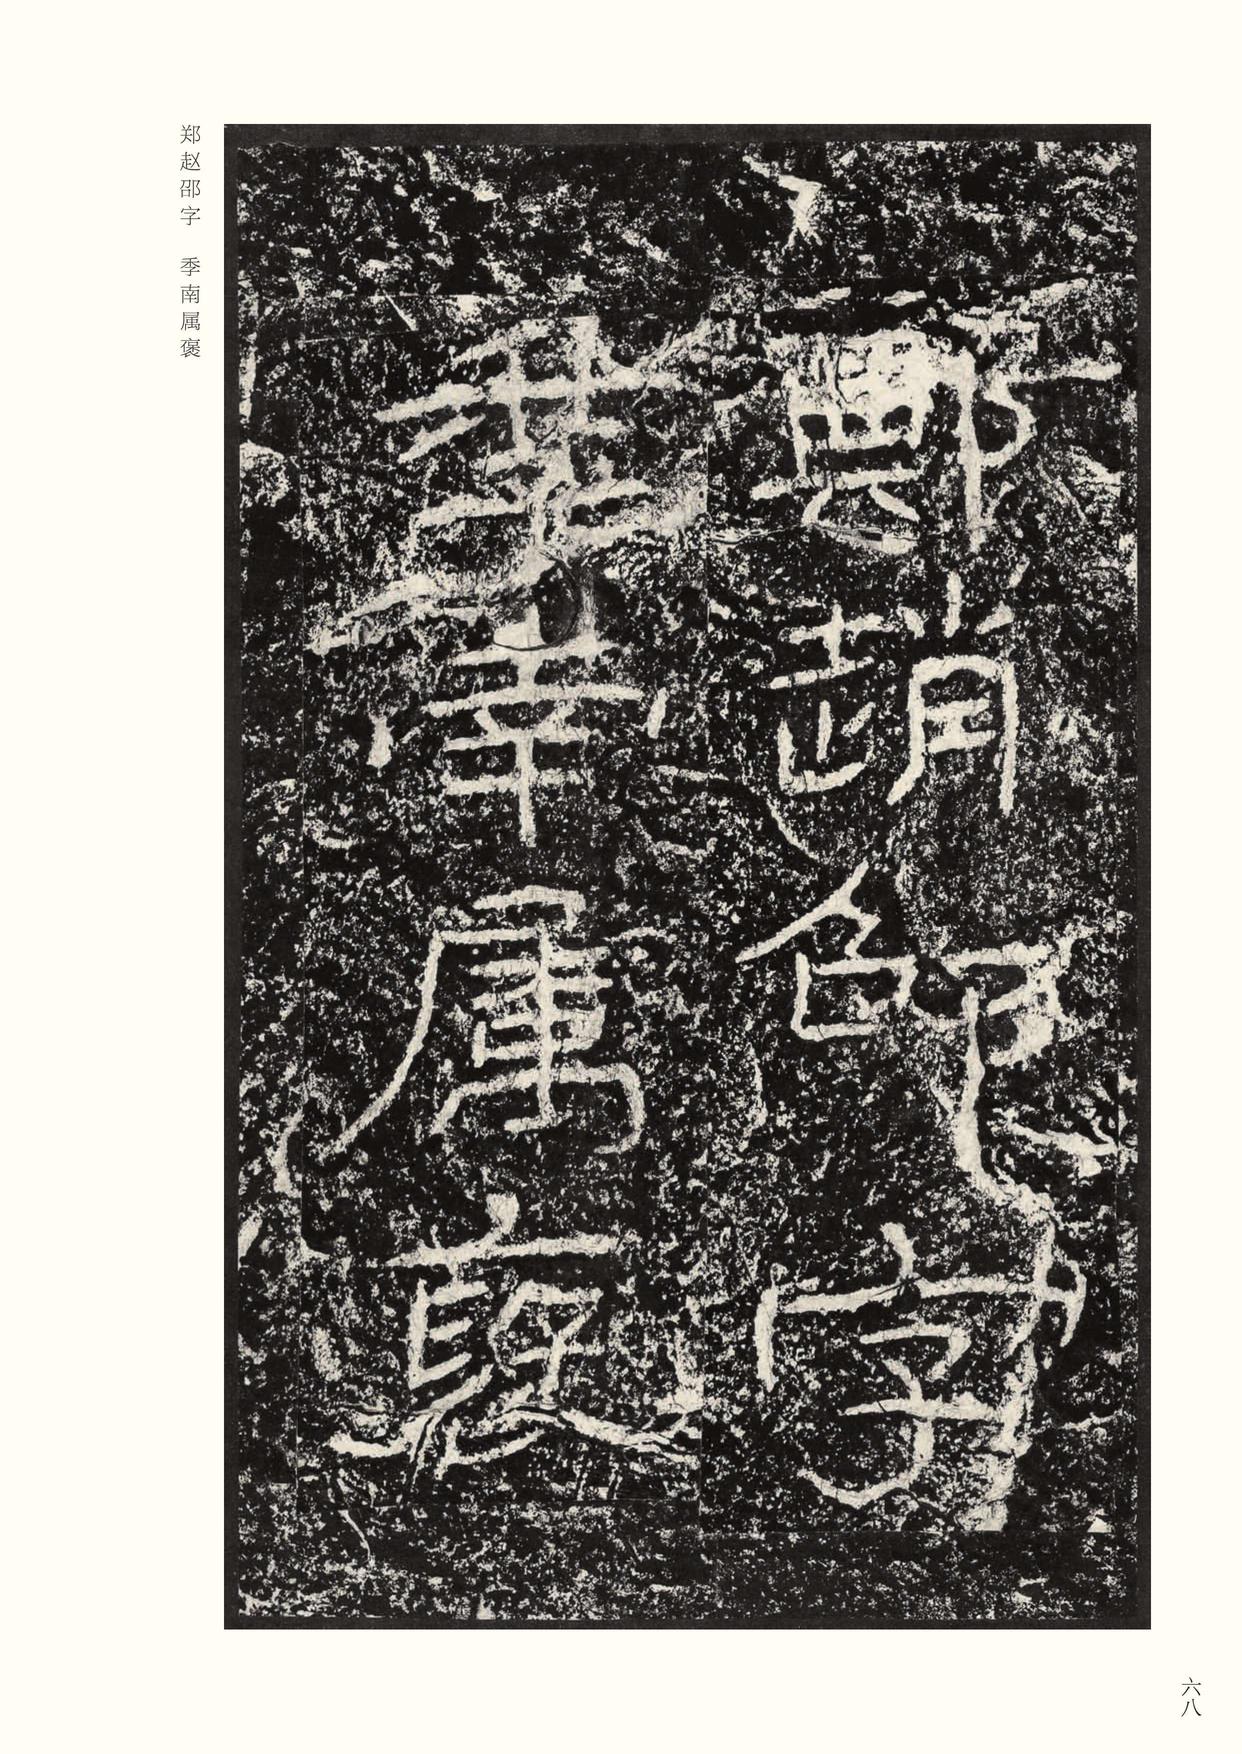 鄭趙邵字
季南属褒
郑赵邵字　季南属褒
六八